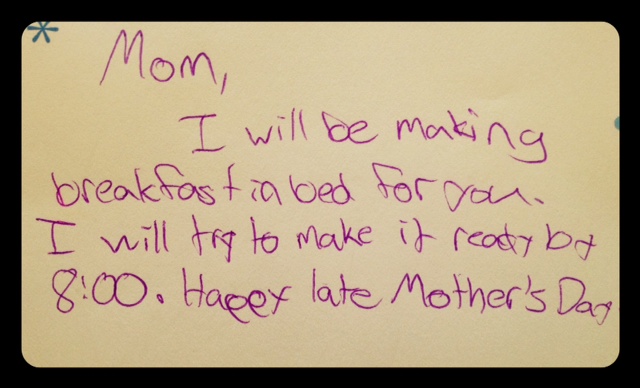 Mom,
I will be making
breakfast in bed for you.
I will try to make it ready by
8:00. Happy late Mother's Day